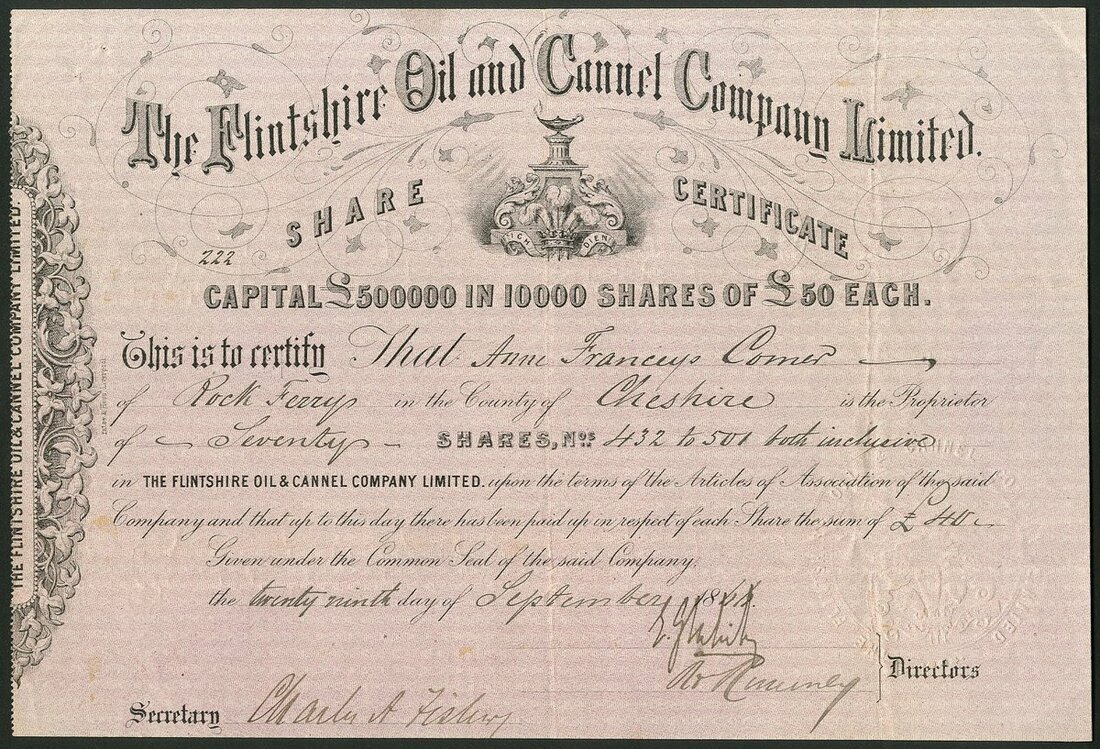 The Flintshire Oil and Cannel Company Limited.
SHARE CERTIFICATE
ICH DIEN
222
CAPITAL £500000 IN 10000 SHARES OF £50 EACH.
This is to certify That Anne Franceys Comer
of Rock Ferry in the County of Cheshire is the Proprietor
of Seventy SHARES, Nos. 432 to 501 both inclusive
in THE FLINTSHIRE OIL & CANNEL COMPANY LIMITED. upon the terms of the Articles of Association of the said
Company and that up to this day there has been paid up in respect of each Share the sum of £40
Given under the Common Seal of the said Company,
the twenty ninth day of September 186
Directors
Secretary Charles A Fisher
THE FLINTSHIRE OIL & CANNEL COMPANY LIMITED.